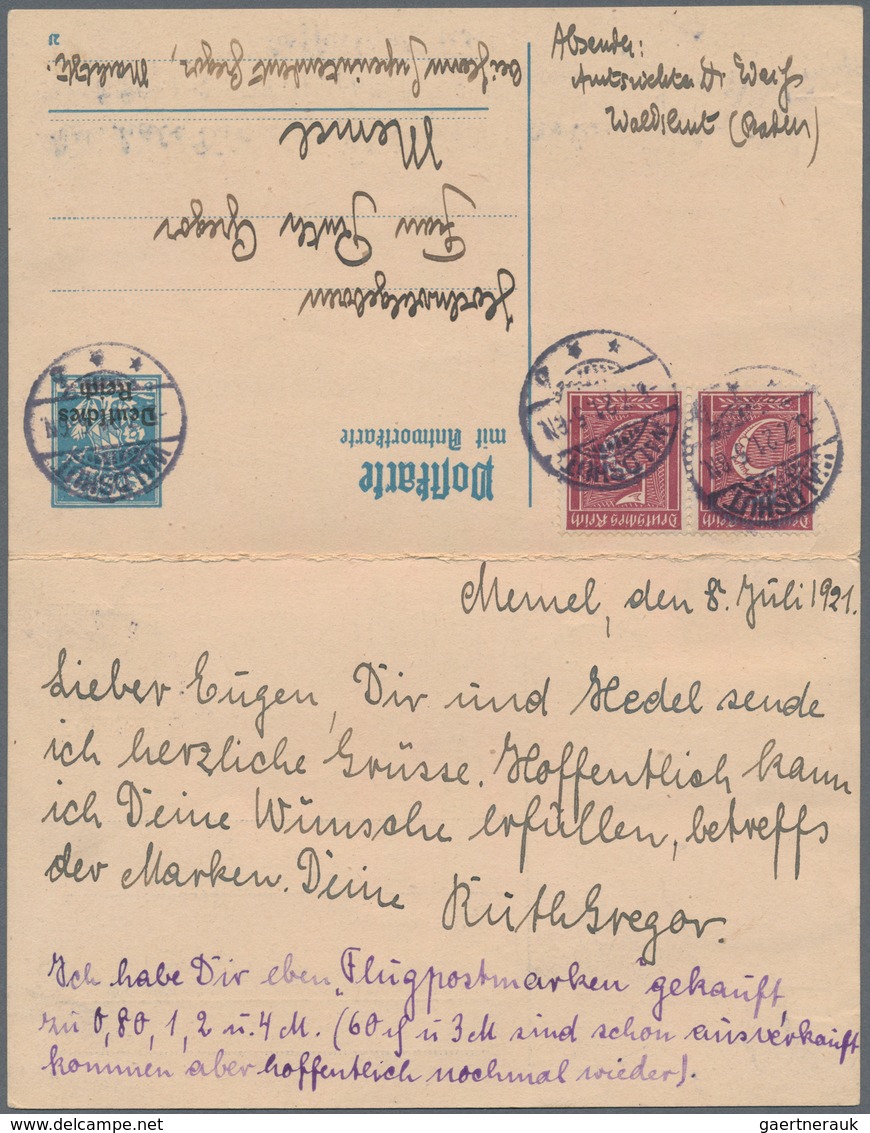 Absender:
Amtsrichter Dr Weiß
Waldshut (Baden)
Postkarte
mit Antwortkarte
Deutsches
Reich
Hochwohlgeboren
Frau Ruth Gregor
Memel
bei Herrn Superintendent Gregor,
Marktstr.
21
WALDSHUT
WALDSHUT
WALDSHUT
Deutsches Reich
Memel, den 8. Juli 1921.
Lieber Eugen, Dir und Hedel sende
ich herzliche Grüsse. Hoffentlich kann
ich Deine Wünsche erfüllen, betreffs
der Marken. Deine
Ruth Gregor.
Ich habe Dir eben „Flugpostmarken" gekauft
zu 0,80, 1, 2 u. 4 M. (60 ₰ u 3 M sind schon ausverkauft
kommen aber hoffentlich nochmal wieder).
gaertnerauk